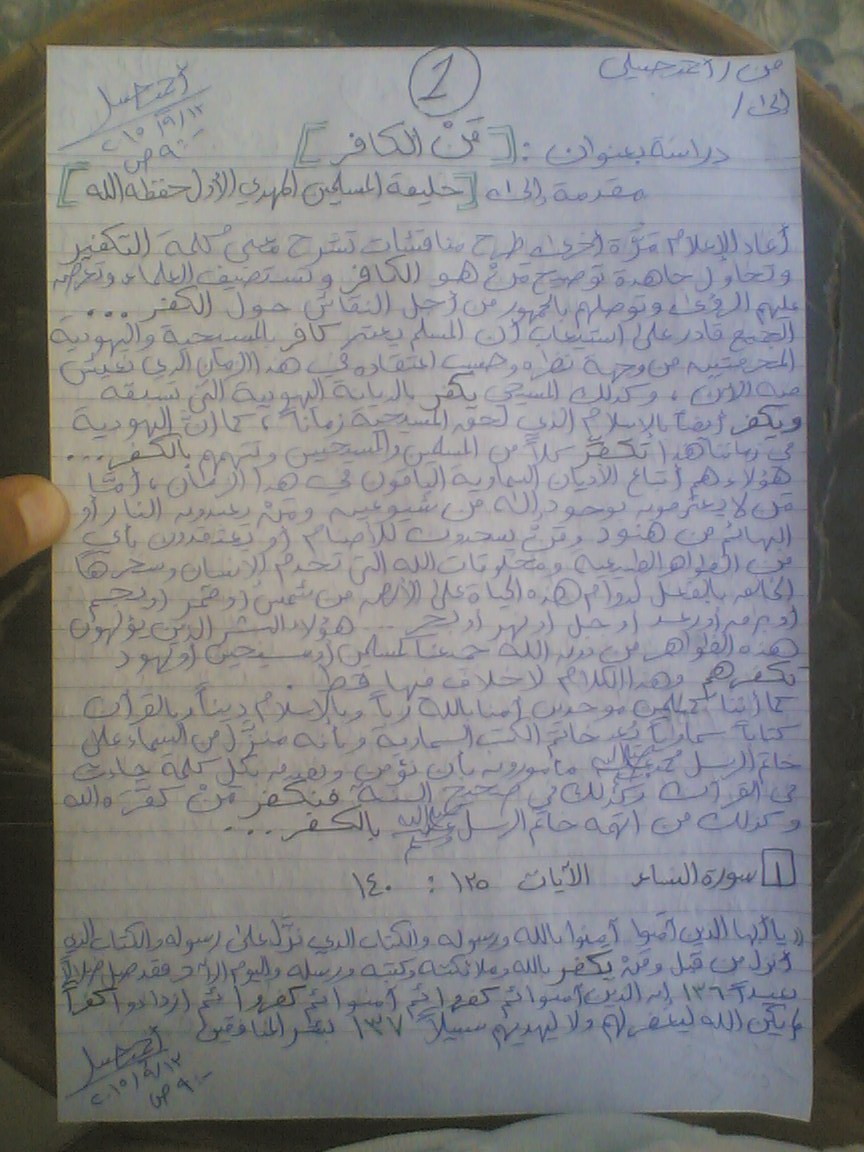 1
من / أحمد حسيلي
إلى /
أحمد حسيل
٢٠١٥/٩/١٢
٩:٠٠ ص
دراسة بعنوان : [ مَنْ الكافر ]
مقدمة إلى [ خليفة المسلمين المهدي الأول حفظه الله ]
أعاد الإعلام مرَّة أخرى طرح مناقشات تشرح معنى كلمة التكفير
وتحاول جاهدة توضيح مَنْ هو الكافر وتستضيف العلماء وتعرض
عليهم الرؤى وتوصلهم بالجمهور من أجل النقاش حول الكفر ...
الجميع قادر على استيعاب أن المسلم يعتبر كافر بالمسيحية واليهودية
من وجهة نظره وحسب اعتقاده في هذا الزمان الذي نعيش
فيه الآن ، وكذلك المسيحي يكفر بالديانة اليهودية التي تسبقه
ويكفر أيضاً بالإسلام الذي لحق المسيحية زماناً ، كما أن اليهودية
في زماننا هذا تكفِّر كلاً من المسلمين والمسيحيين وتتهمهم بالكفر ...
هؤلاء هم أتباع الأديان السماوية الباقون في هذا الزمان ، أمَّا
مَن لا يعترفون بوجود الله من شيوعيين ومَنْ يعبدون النار أو
البهائم من هنود ومَنْ يسجدون للأصنام أو يعتقدون بأي
من الظواهر الطبيعية ومخلوقات الله التي تخدم الإنسان وسخرها
الخالق بالفعل لدوام هذه الحياة على الأرض من شمس أو قمر أو نجم
أو برق أو رعد أو جبل أو نهر أو بحر ... هؤلاء البشر الذين يؤلهون
هذه الظواهر من دون الله جميعنا كمسلمين أو مسيحيين أو يهود
نكفرهم وهذا الكلام لا خلاف فيها قط .
كما أننا كمسلمين موحدين آمنا بالله رباً وبالإسلام ديناً وبالقرآن
كتاباً سماوياً يُعد خاتم الكتب السماوية وبأنه منزَّل من السماء على
خاتم الرسل محمد صلى الله عليه وسلم مأمورون بأن نؤمن ونصدق بكل كلمة جاءت
في القرآن وكذلك في صحيح السنة فنكفر مَنْ كفَّره الله
وكذلك من اتهمه خاتم الرسل صلى الله عليه وسلم بالكفر ...
١ سورة النساء الآيات ١٣٥ : ١٤٠
« يا أيها الذين آمنوا آمِنوا بالله ورسوله والكتاب الذي نزَّل على رسوله والكتاب الذي
أنزل من قبل ومَنْ يكفر بالله وملائكته وكتبه ورسله واليوم الآخر فقد ضل ضلالاً
بعيداً ١٣٦ إن الذين آمنوا ثم كفروا ثم آمنوا ثم كفروا ثم ازدادوا كفراً
لم يكن الله ليغفر لهم ولا ليهديهم سبيلاً ١٣٧ بشر المنافقين
أحمد حسيل
٢٠١٥/٩/١٢
٩:٠٠ ص